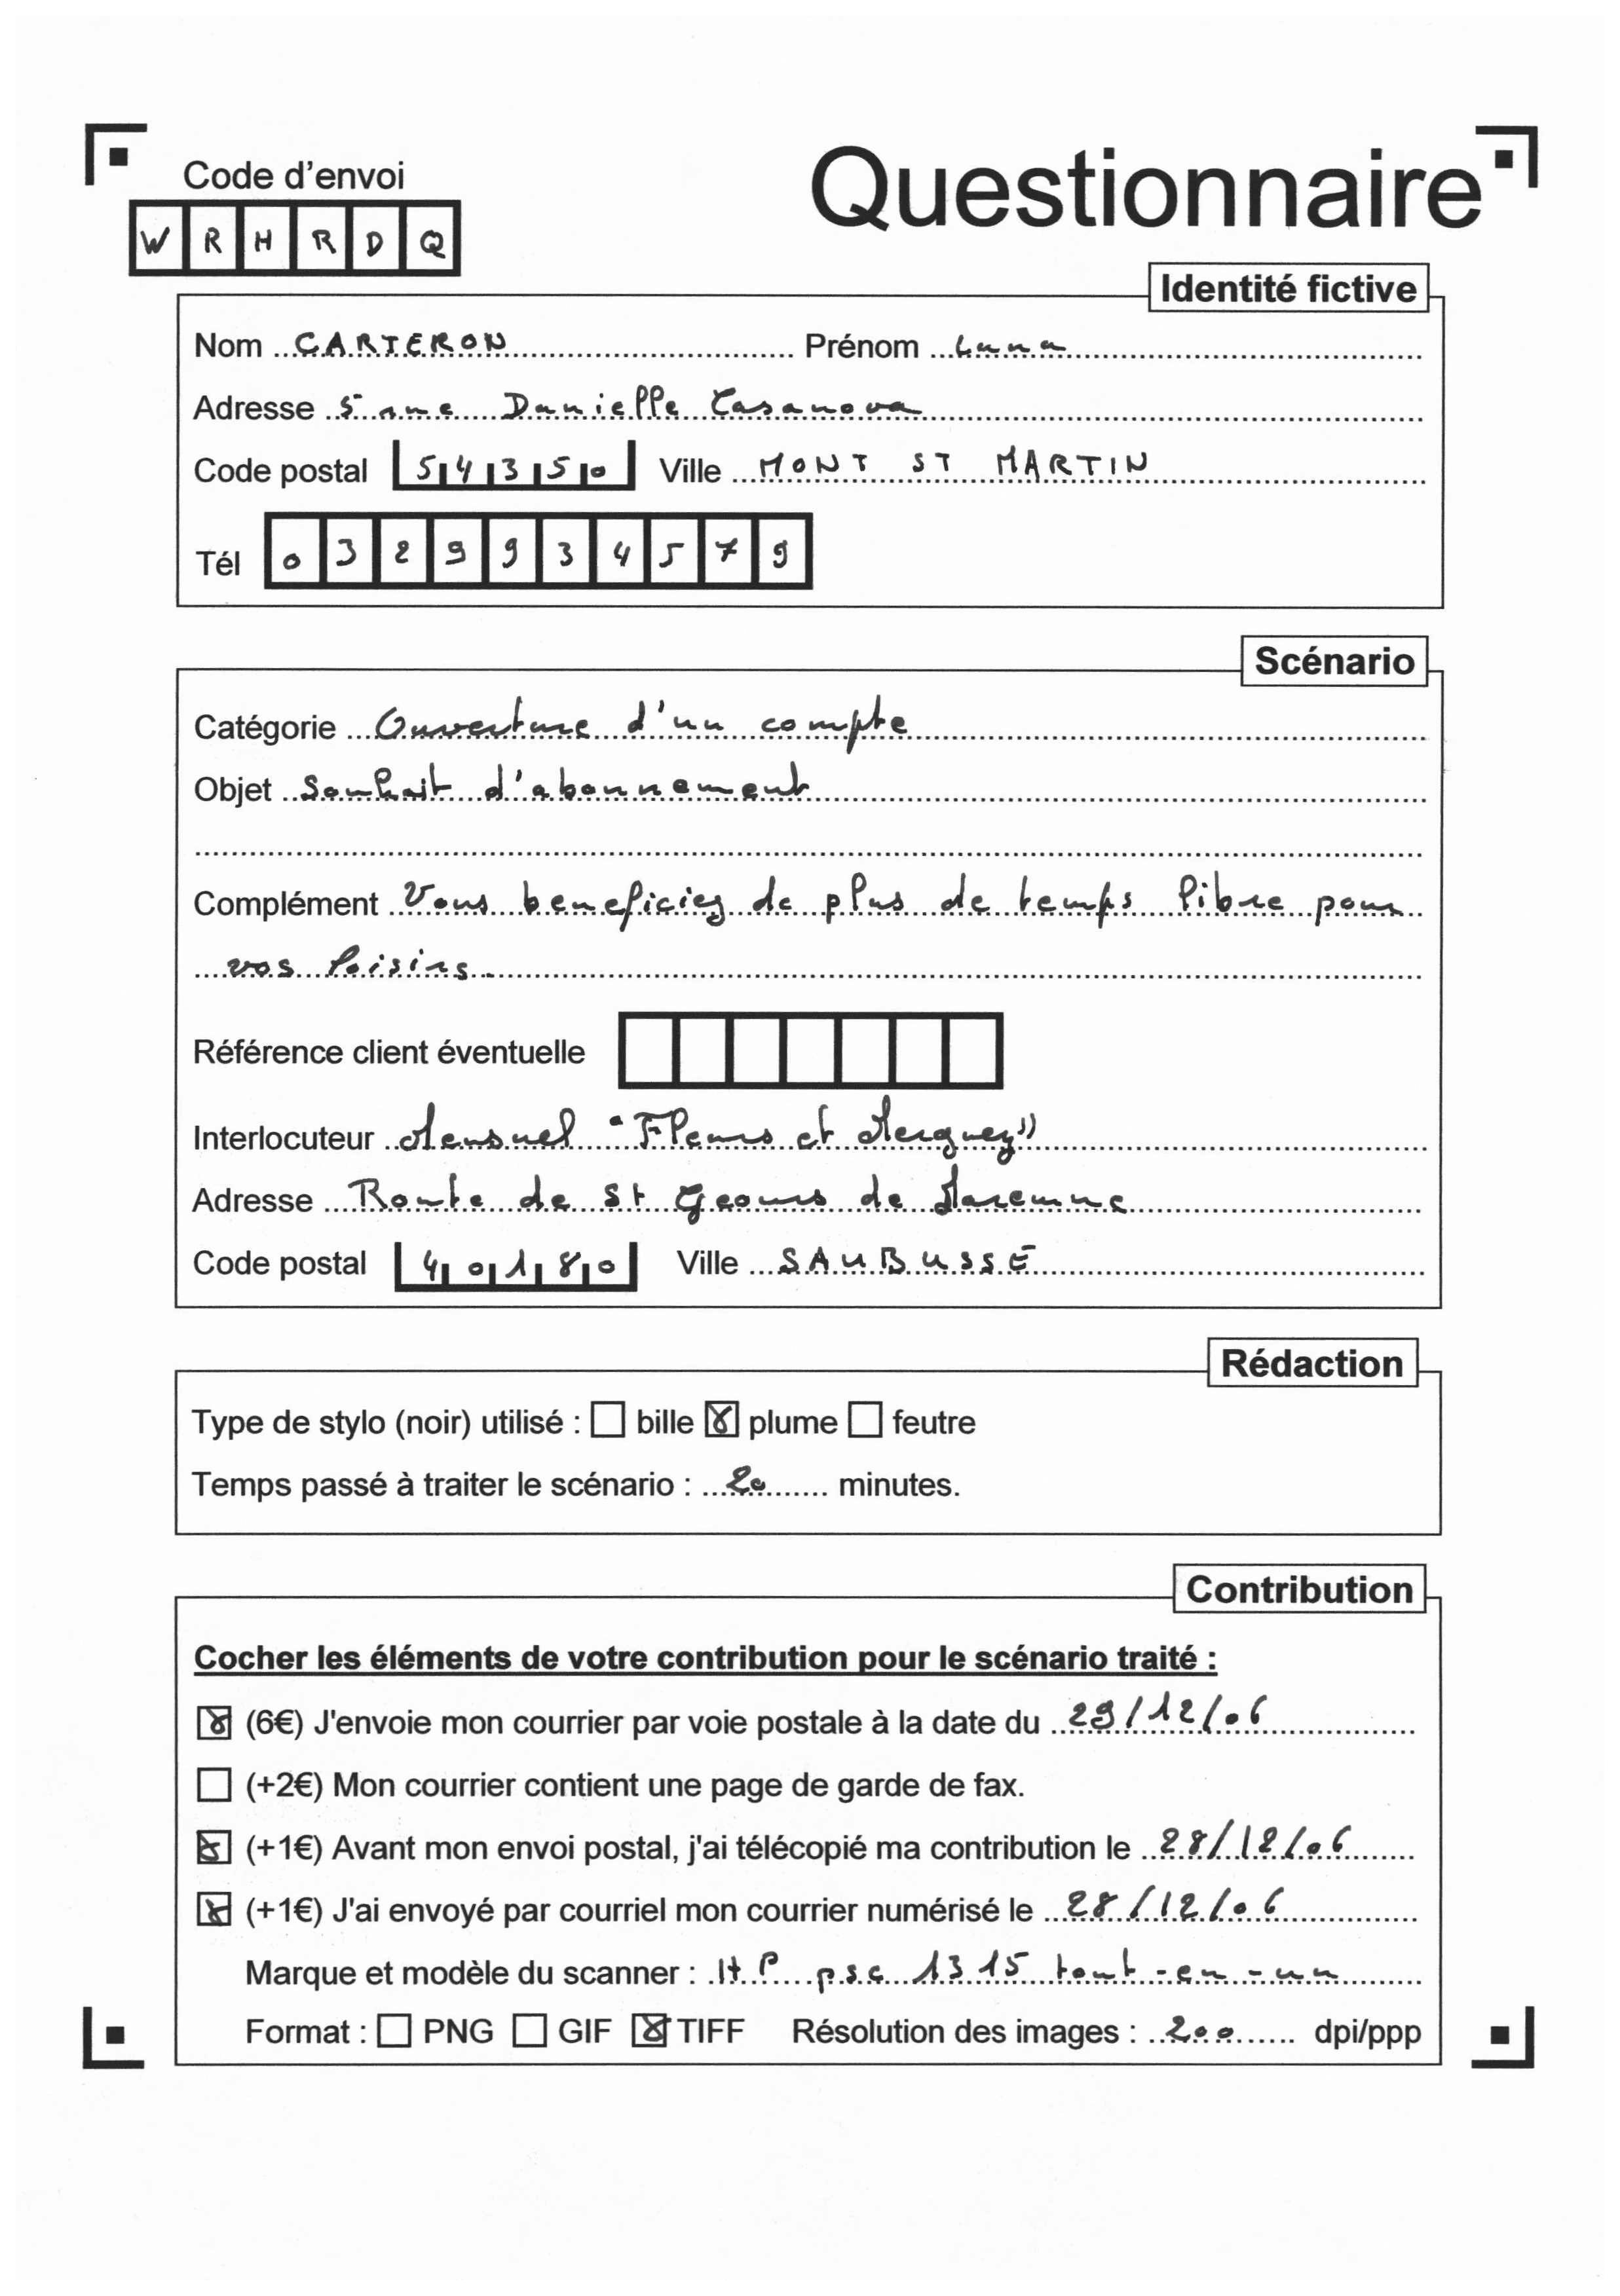 Code d'envoi
Questionnaire
W R H R D Q
Identité fictive
Nom CARTERON Prénom Luna
Adresse 5 rue Danielle Casanova
Code postal 54350 Ville MONT ST MARTIN
Tél 0329934579
Scénario
Catégorie Ouverture d'un compte
Objet Souhait d'abonnement
Complément Vous beneficiez de plus de temps libre pour
vos loisirs.
Référence client éventuelle
Interlocuteur Mensuel "Fleurs et Merguez"
Adresse Route de St Geours de Maremne
Code postal 40180 Ville SAUBUSSE
Rédaction
Type de stylo (noir) utilisé : bille plume feutre
Temps passé à traiter le scénario : 20 minutes.
Contribution
Cocher les éléments de votre contribution pour le scénario traité :
(6€) J'envoie mon courrier par voie postale à la date du 29/12/06
(+2€) Mon courrier contient une page de garde de fax.
(+1€) Avant mon envoi postal, j'ai télécopié ma contribution le 28/12/06
(+1€) J'ai envoyé par courriel mon courrier numérisé le 28/12/06
Marque et modèle du scanner : HP psc 1315 tout-en-un
Format : PNG GIF TIFF Résolution des images : 200 dpi/ppp